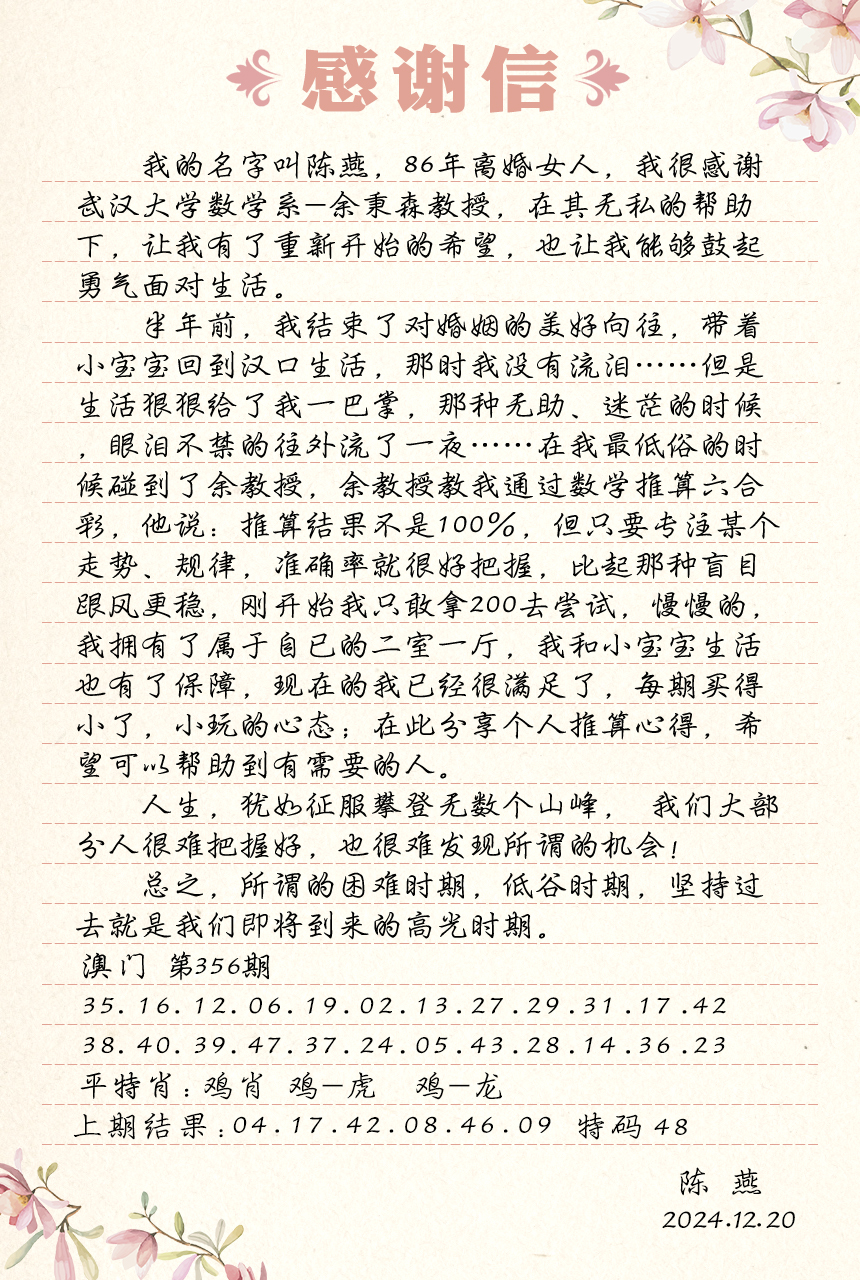 感谢信
我的名字叫陈燕，86年离婚女人，我很感谢
武汉大学数学系—余秉森教授，在其无私的帮助
下，让我有了重新开始的希望，也让我能够鼓起
勇气面对生活。
半年前，我结束了对婚姻的美好向往，带着
小宝宝回到汉口生活，那时我没有流泪……但是
生活狠狠给了我一巴掌，那种无助、迷茫的时候
，眼泪不禁的往外流了一夜……在我最低俗的时
候碰到了余教授，余教授教我通过数学推算六合
彩，他说：推算结果不是100%，但只要专注某个
走势、规律，准确率就很好把握，比起那种盲目
跟风更稳，刚开始我只敢拿200去尝试，慢慢的，
我拥有了属于自已的二室一厅，我和小宝宝生活
也有了保障，现在的我已经很满足了，每期买得
小了，小玩的心态；在此分享个人推算心得，希
望可以帮助到有需要的人。
人生，犹如征服攀登无数个山峰， 我们大部
分人很难把握好，也很难发现所谓的机会！
总之，所谓的困难时期，低谷时期，坚持过
去就是我们即将到来的高光时期。
澳门 第356期
35.16.12.06.19.02.13.27.29.31.17.42
38.40.39.47.37.24.05.43.28.14.36.23
平特肖：鸡肖 鸡—虎 鸡—龙
上期结果：04.17.42.08.46.09 特码 48
陈 燕
2024.12.20